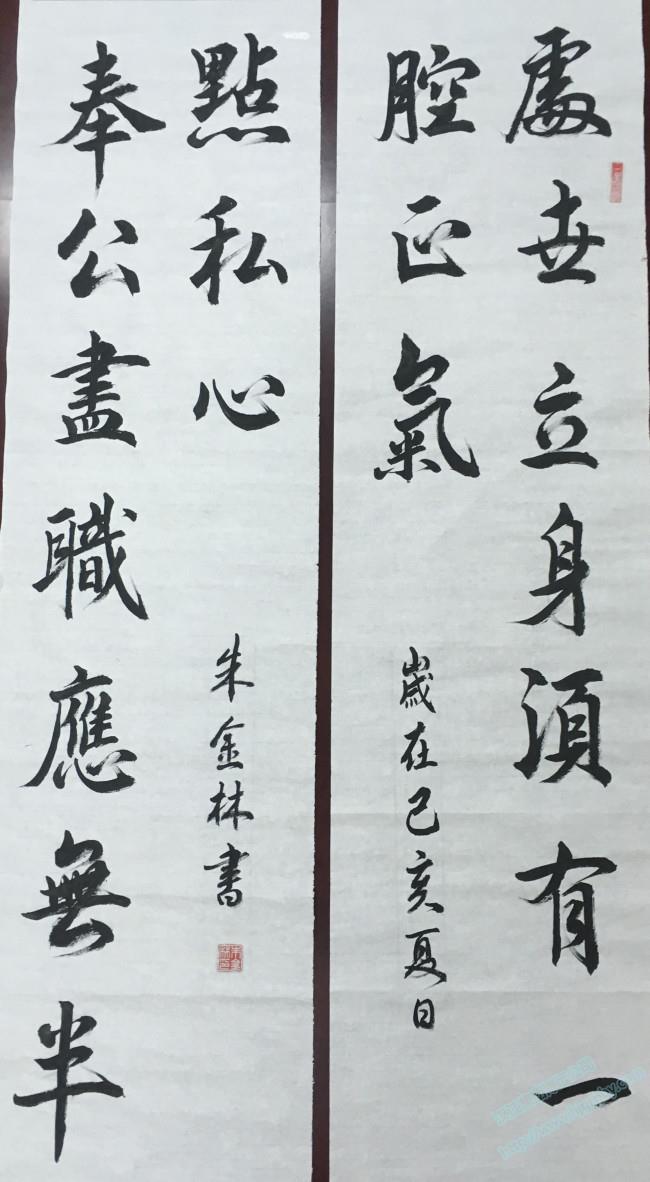 處世立身須有一
腔正氣
歲在己亥夏日
奉公盡職應無半
點私心
朱金林書